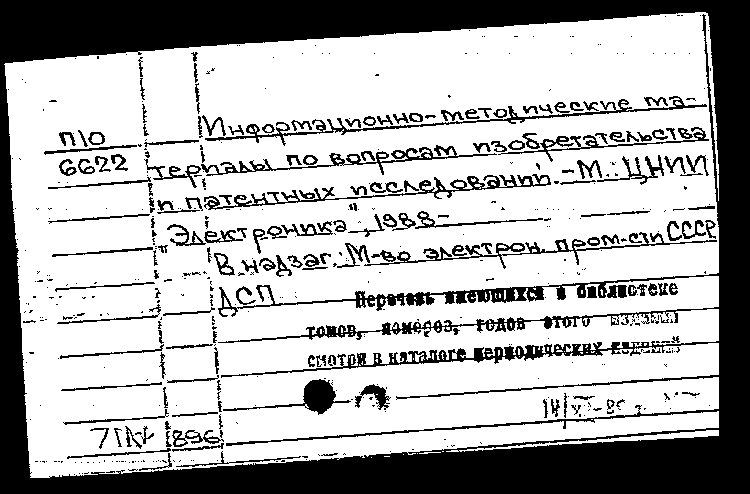 П/О
6622
Информационно-методические ма-
териалы по вопросам изобретательства
и патентных исследований. - М.: ЦНИИ
"Электроника", 1988-
В надзаг.: М-во электрон. пром-сти СССР
ДСП
Перечень имеющихся в библиотеке
томов, номеров, годов этого издания
смотри в каталоге периодических изданий
896